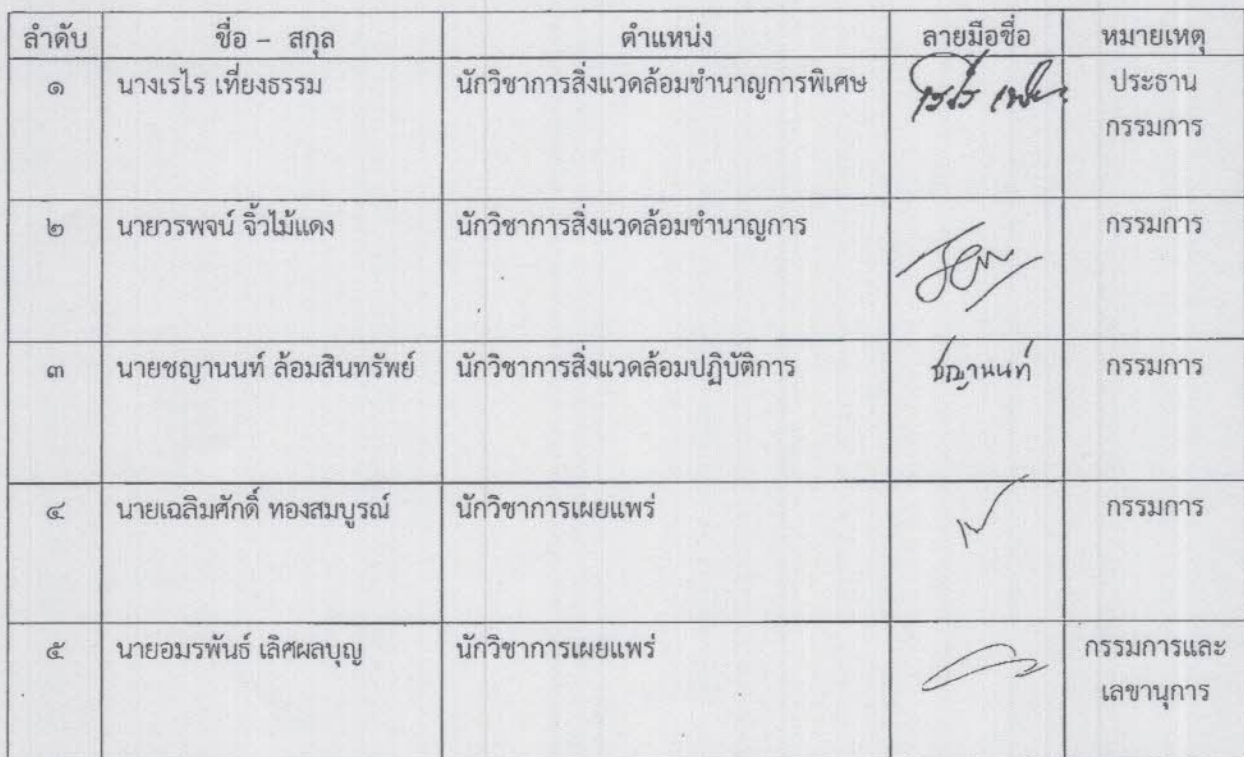 ลำดับ ชื่อ – สกุล ตำแหน่ง ลายมือชื่อ หมายเหตุ
๑ นางเรไร เที่ยงธรรม นักวิชาการสิ่งแวดล้อมชำนาญการพิเศษ ประธาน
กรรมการ
๒ นายวรพจน์ จิ้วไม้แดง นักวิชาการสิ่งแวดล้อมชำนาญการ กรรมการ
๓ นายชญานนท์ ล้อมสินทรัพย์ นักวิชาการสิ่งแวดล้อมปฏิบัติการ ชญานนท์ กรรมการ
๔ นายเฉลิมศักดิ์ ทองสมบูรณ์ นักวิชาการเผยแพร่ กรรมการ
๕ นายอมรพันธ์ เลิศผลบุญ นักวิชาการเผยแพร่ กรรมการและ
เลขานุการ